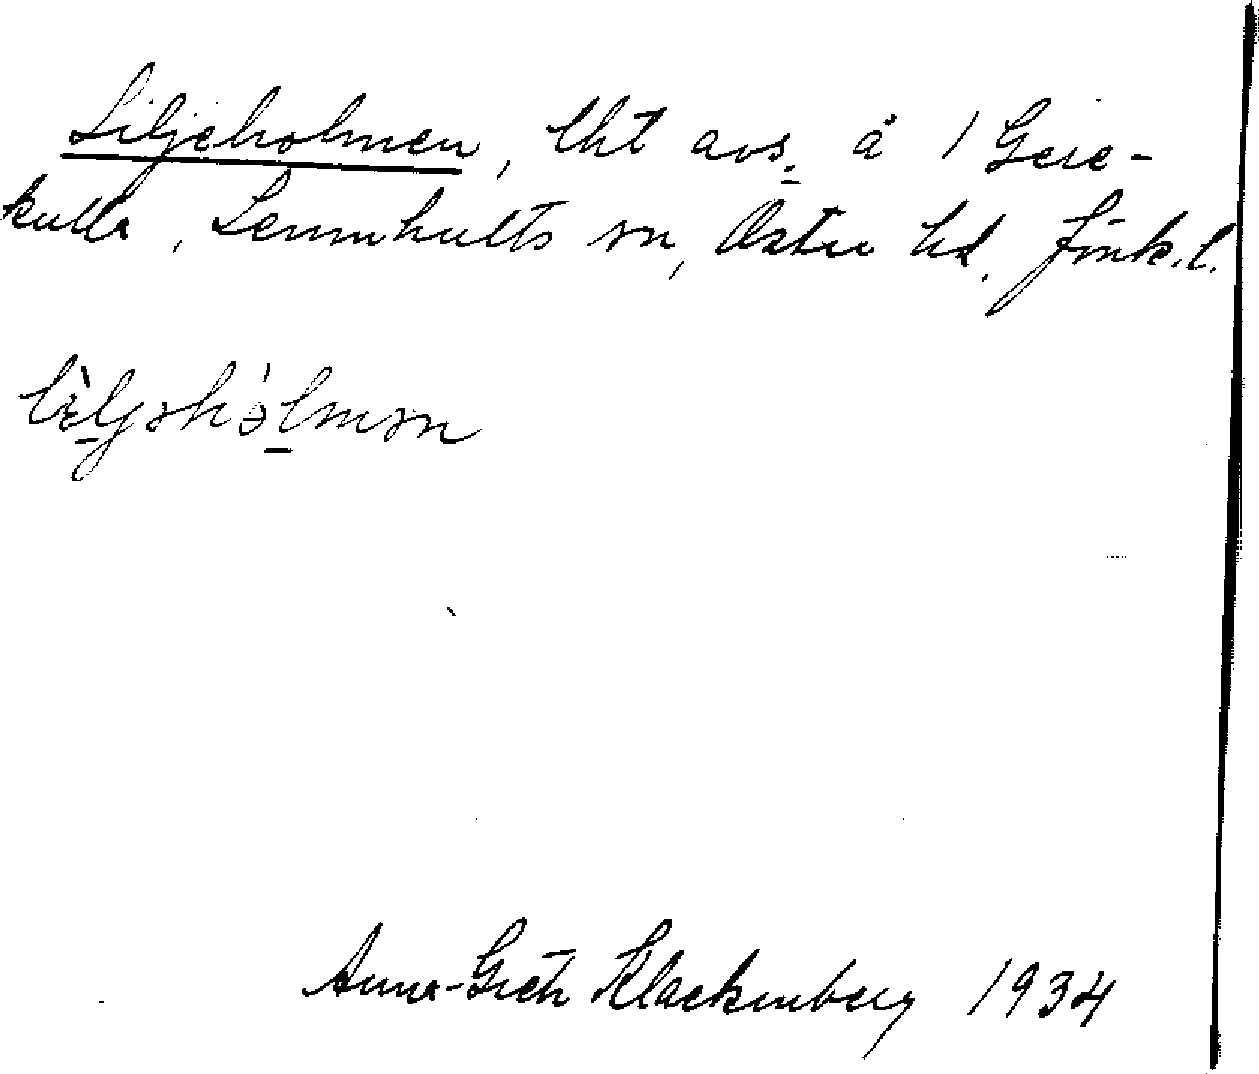 Liljeholmen, lht avs. å 1 Gere-
kulla, Lemnhults sn, Östra hd. Jönk. l.
lìljəhólmən
Anna-Greta Klackenberg 1934